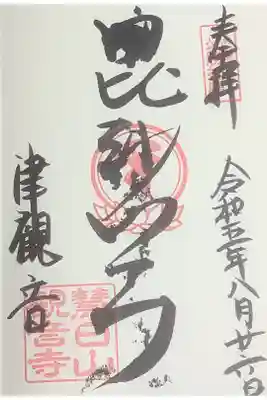 奉拝
令和五年八月廿六日
毘沙門天
津観音
慧日山
観音寺